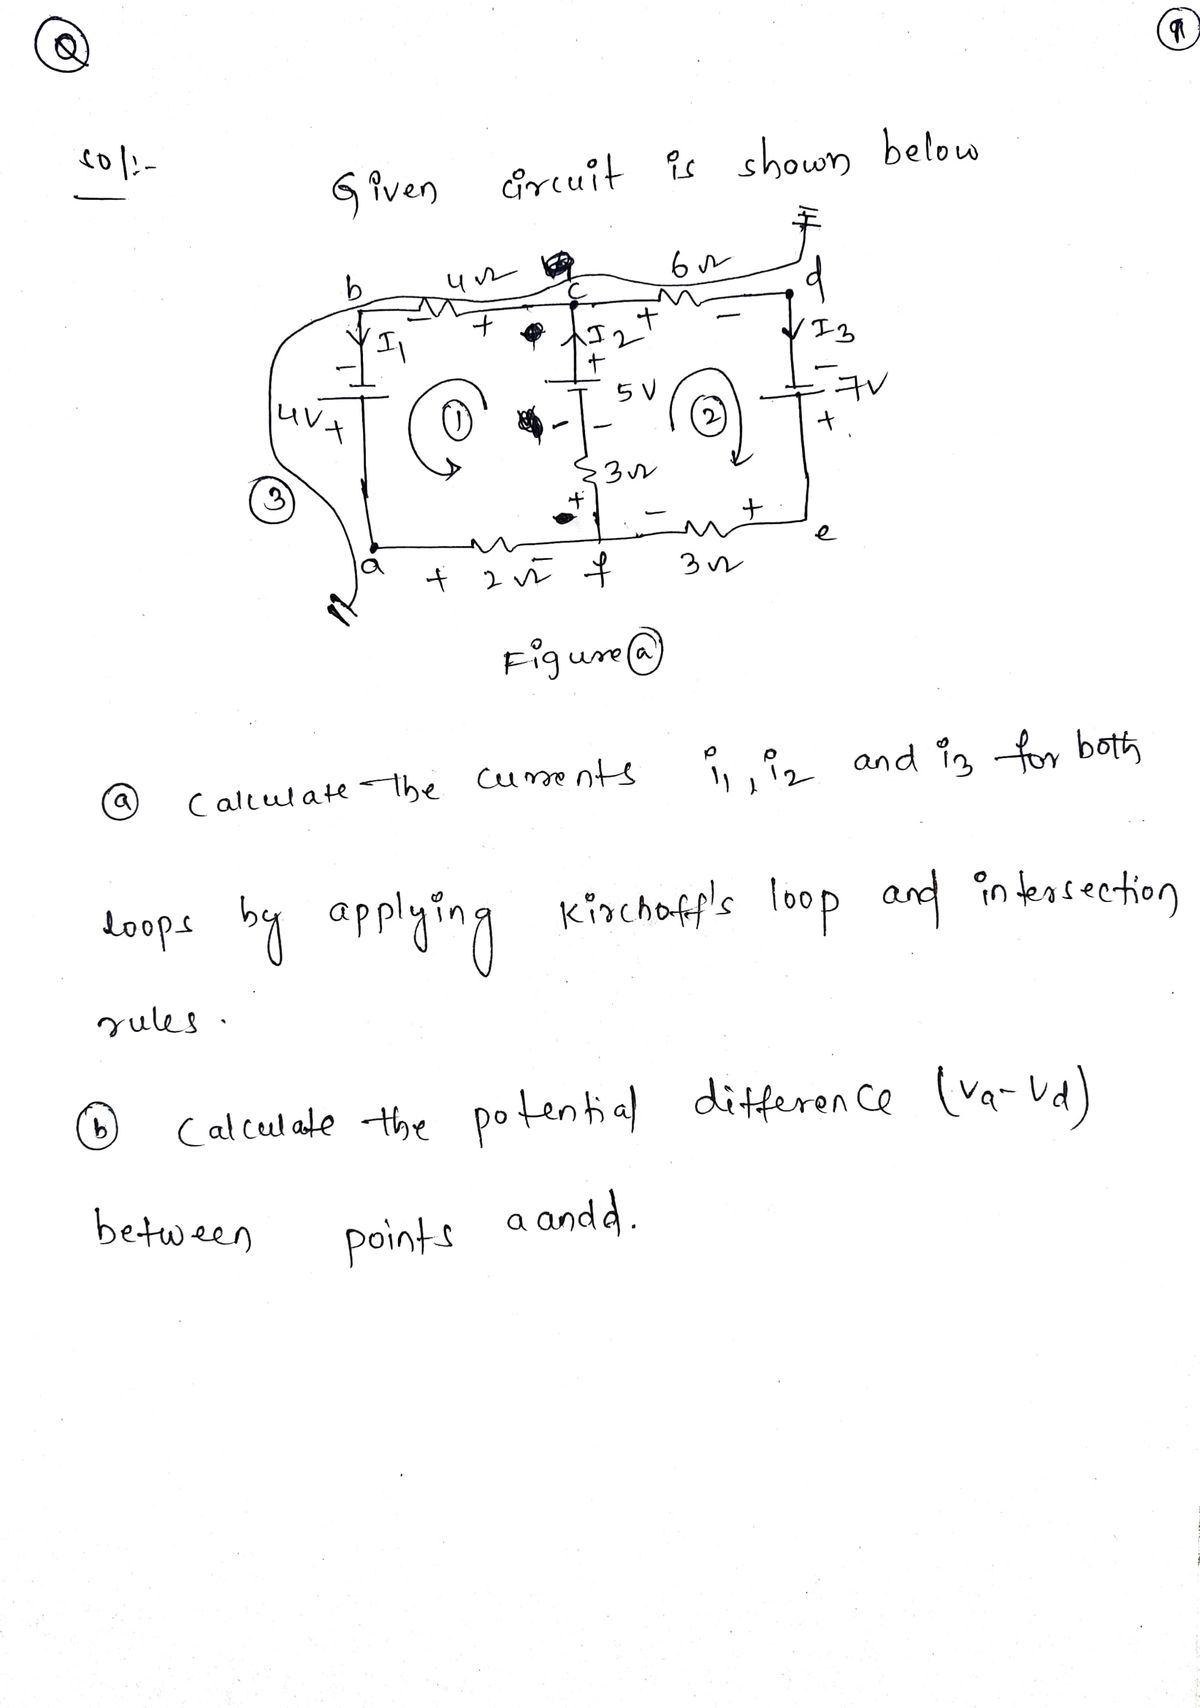 Q
sol:-
Given circuit is shown below
b 4Ω c 6Ω d
- + + -
I1 I2 I3
- + -
4V 5V 7V
+ - - +
1 2
3Ω
3 + - +
a f e
+ 2Ω - 3Ω
Figure (a)
(a) Calculate the currents i1, i2 and i3 for both
loops by applying Kirchoff's loop and intersection
rules.
(b) Calculate the potential difference (Va-Vd)
between points a and d.